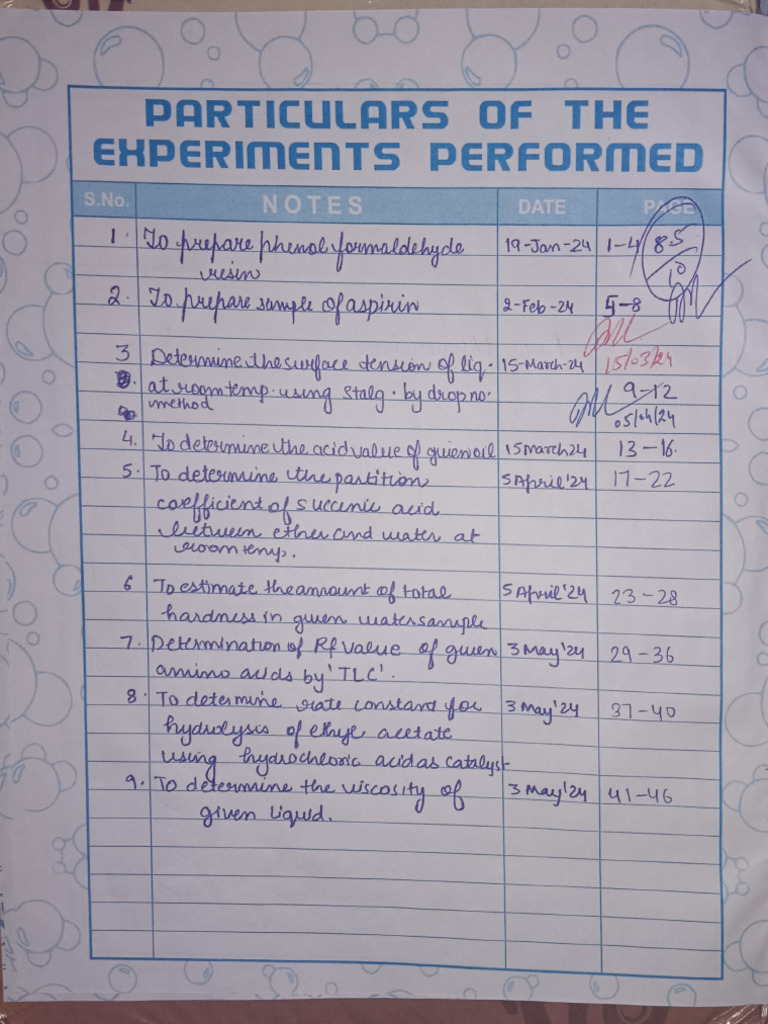 PARTICULARS OF THE
EXPERIMENTS PERFORMED
S.No. NOTES DATE PAGE
1. To prepare phenol formaldehyde 19-Jan-24 1-4 8.5
resin 10
2. To prepare sample of aspirin 2-Feb-24 5-8
3 Determine the surface tension of liq. 15-March-24 15/03/24
at room temp. using stalg. by drop no. 9-12
method 05/04/24
4. To determine the acid value of given oil 15 March 24 13-16.
5. To determine the partition 5 April'24 17-22
coefficient of succinic acid
between ether and water at
room temp.
6 To estimate the amount of total 5 April'24 23-28
hardness in given water sample
7. Determination of Rf value of given 3 May'24 29-36
amino acids by 'TLC'.
8. To determine rate constant for 3 May'24 37-40
hydrolysis of ethyl acetate
using hydrochloric acid as catalyst
9. To determine the viscosity of 3 May'24 41-46
given liquid.